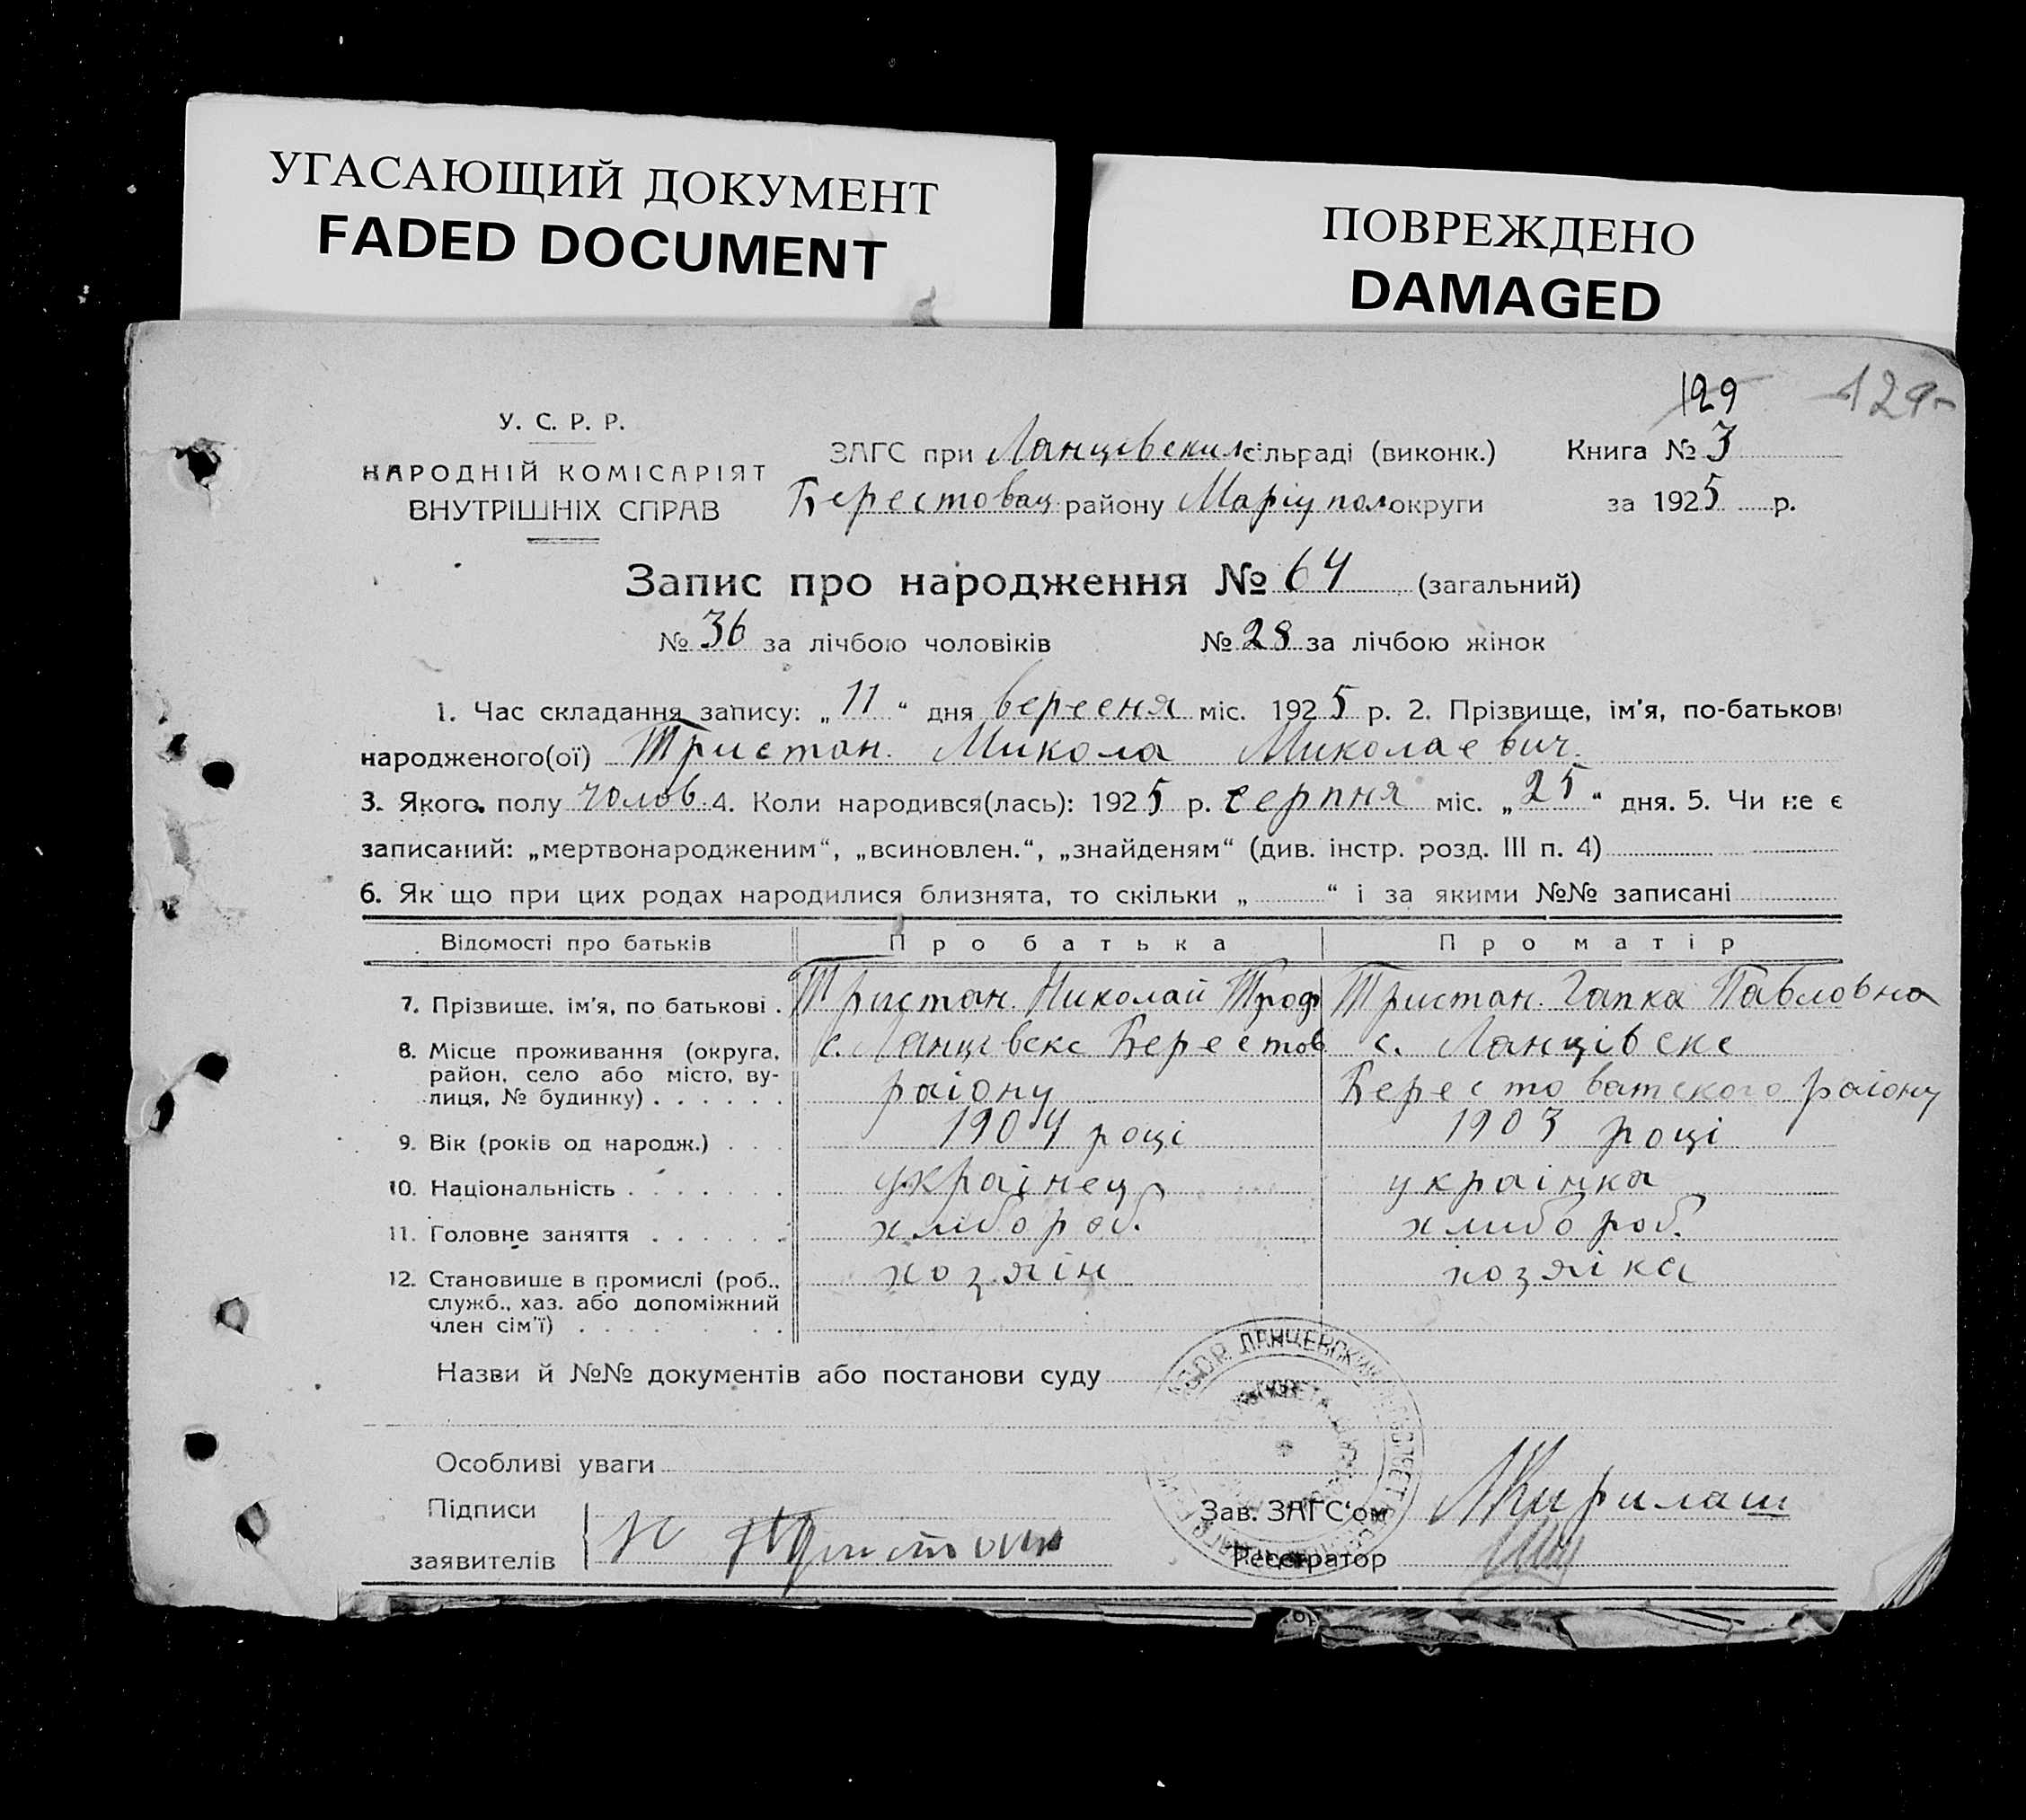 УГАСАЮЩИЙ ДОКУМЕНТ
FADED DOCUMENT
ПОВРЕЖДЕНО
DAMAGED
129
129
У. С. Р. Р.
НАРОДНІЙ КОМІСАРІЯТ
ВНУТРІШНІХ СПРАВ
ЗАГС при Ланцівский сільраді (виконк.) Книга № 3
Берестовац. району Маріупол. округи за 1925 р.
Запис про народження № 64 (загальний)
№ 36 за лічбою чоловіків № 28 за лічбою жінок
1. Час складання запису: „11“ дня вересня міс. 1925 р. 2. Прізвище, ім'я, по-батькові
народженого(ої) Тристан. Микола Миколаевич.
3. Якого полу чолов. 4. Коли народився(лась): 1925 р. серпня міс. „25“ дня. 5. Чи не є
записаний: „мертвонародженим“, „всиновлен.“, „знайденям“ (див. інстр. розд. III п. 4)
6. Як що при цих родах народилися близнята, то скільки „ “ і за якими №№ записані
Відомості про батьків Про батька Про матір
7. Прізвище, ім'я, по батькові . Тристан. Николай Троф. Тристан. Гапка Павловна
8. Місце проживання (округа, район, село або місто, вулиця, № будинку) . . . . . .
с. Ланцівске Берестов.
району
с. Ланцівске
Берестоватского району
9. Вік (років од народж.) . . . 1904 році 1903 році
10. Національність . . . . . . . украінец украінка
11. Головне заняття . . . . . . хлибороб. хлибороб.
12. Становище в промислі (роб., хозяін хозяіка
служб., хаз. або допоміжний
член сім'ї) . . . . . . . .
Назви й №№ документів або постанови суду
Особливі уваги
Підписи
заявителів Н Тристан
Зав. ЗАГС'ом Кирилаш
Реєстратор
ЛАНЦЕВСКИЙ